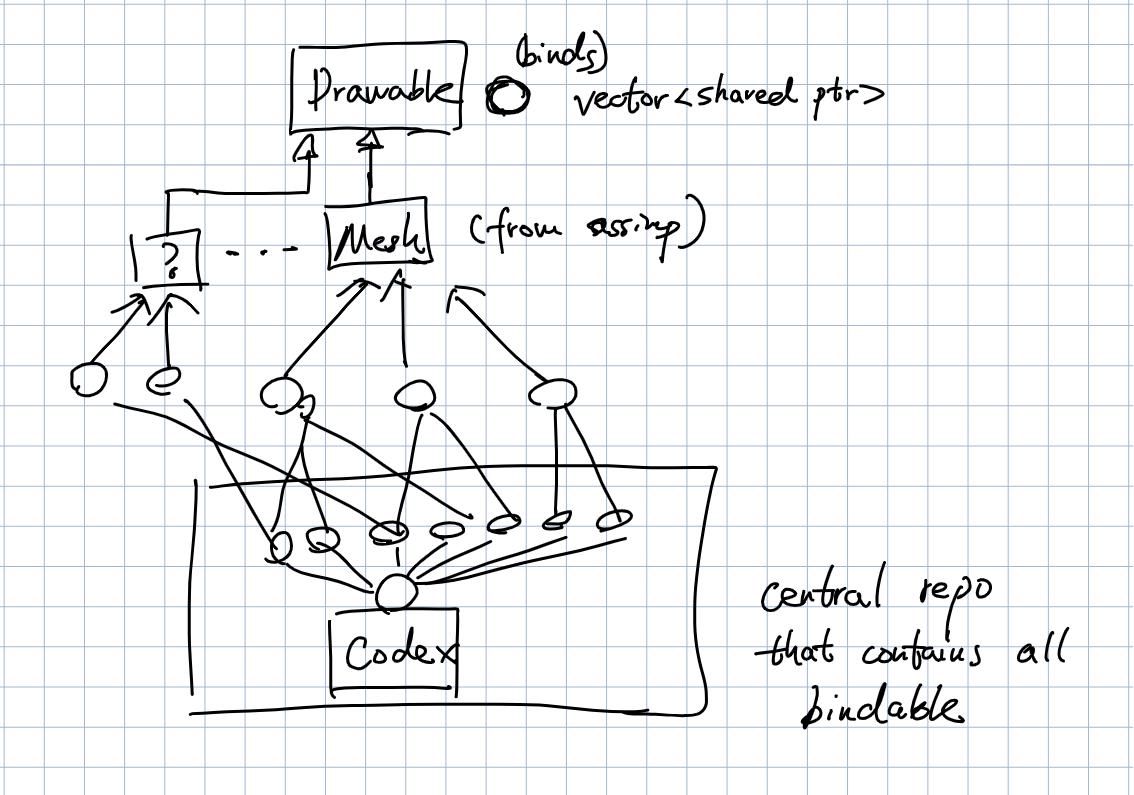 (binds)
Drawable
vector<shared ptr>
?
...
Mesh
(from assimp)
Codex
central repo
that contains all
bindable